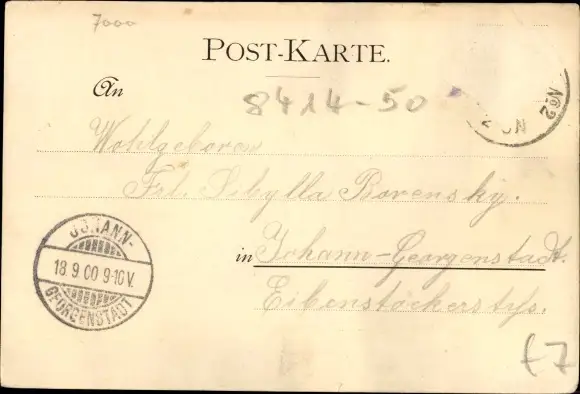 7000
POST-KARTE.
An
8414-50
No 2
Wohlgeboren
Frl. Sibylla Borensky.
in Johann-Georgenstadt.
Eibenstöckerstr.
JOHANN-
18.9.00 9-10V.
GEORGENSTADT
£7